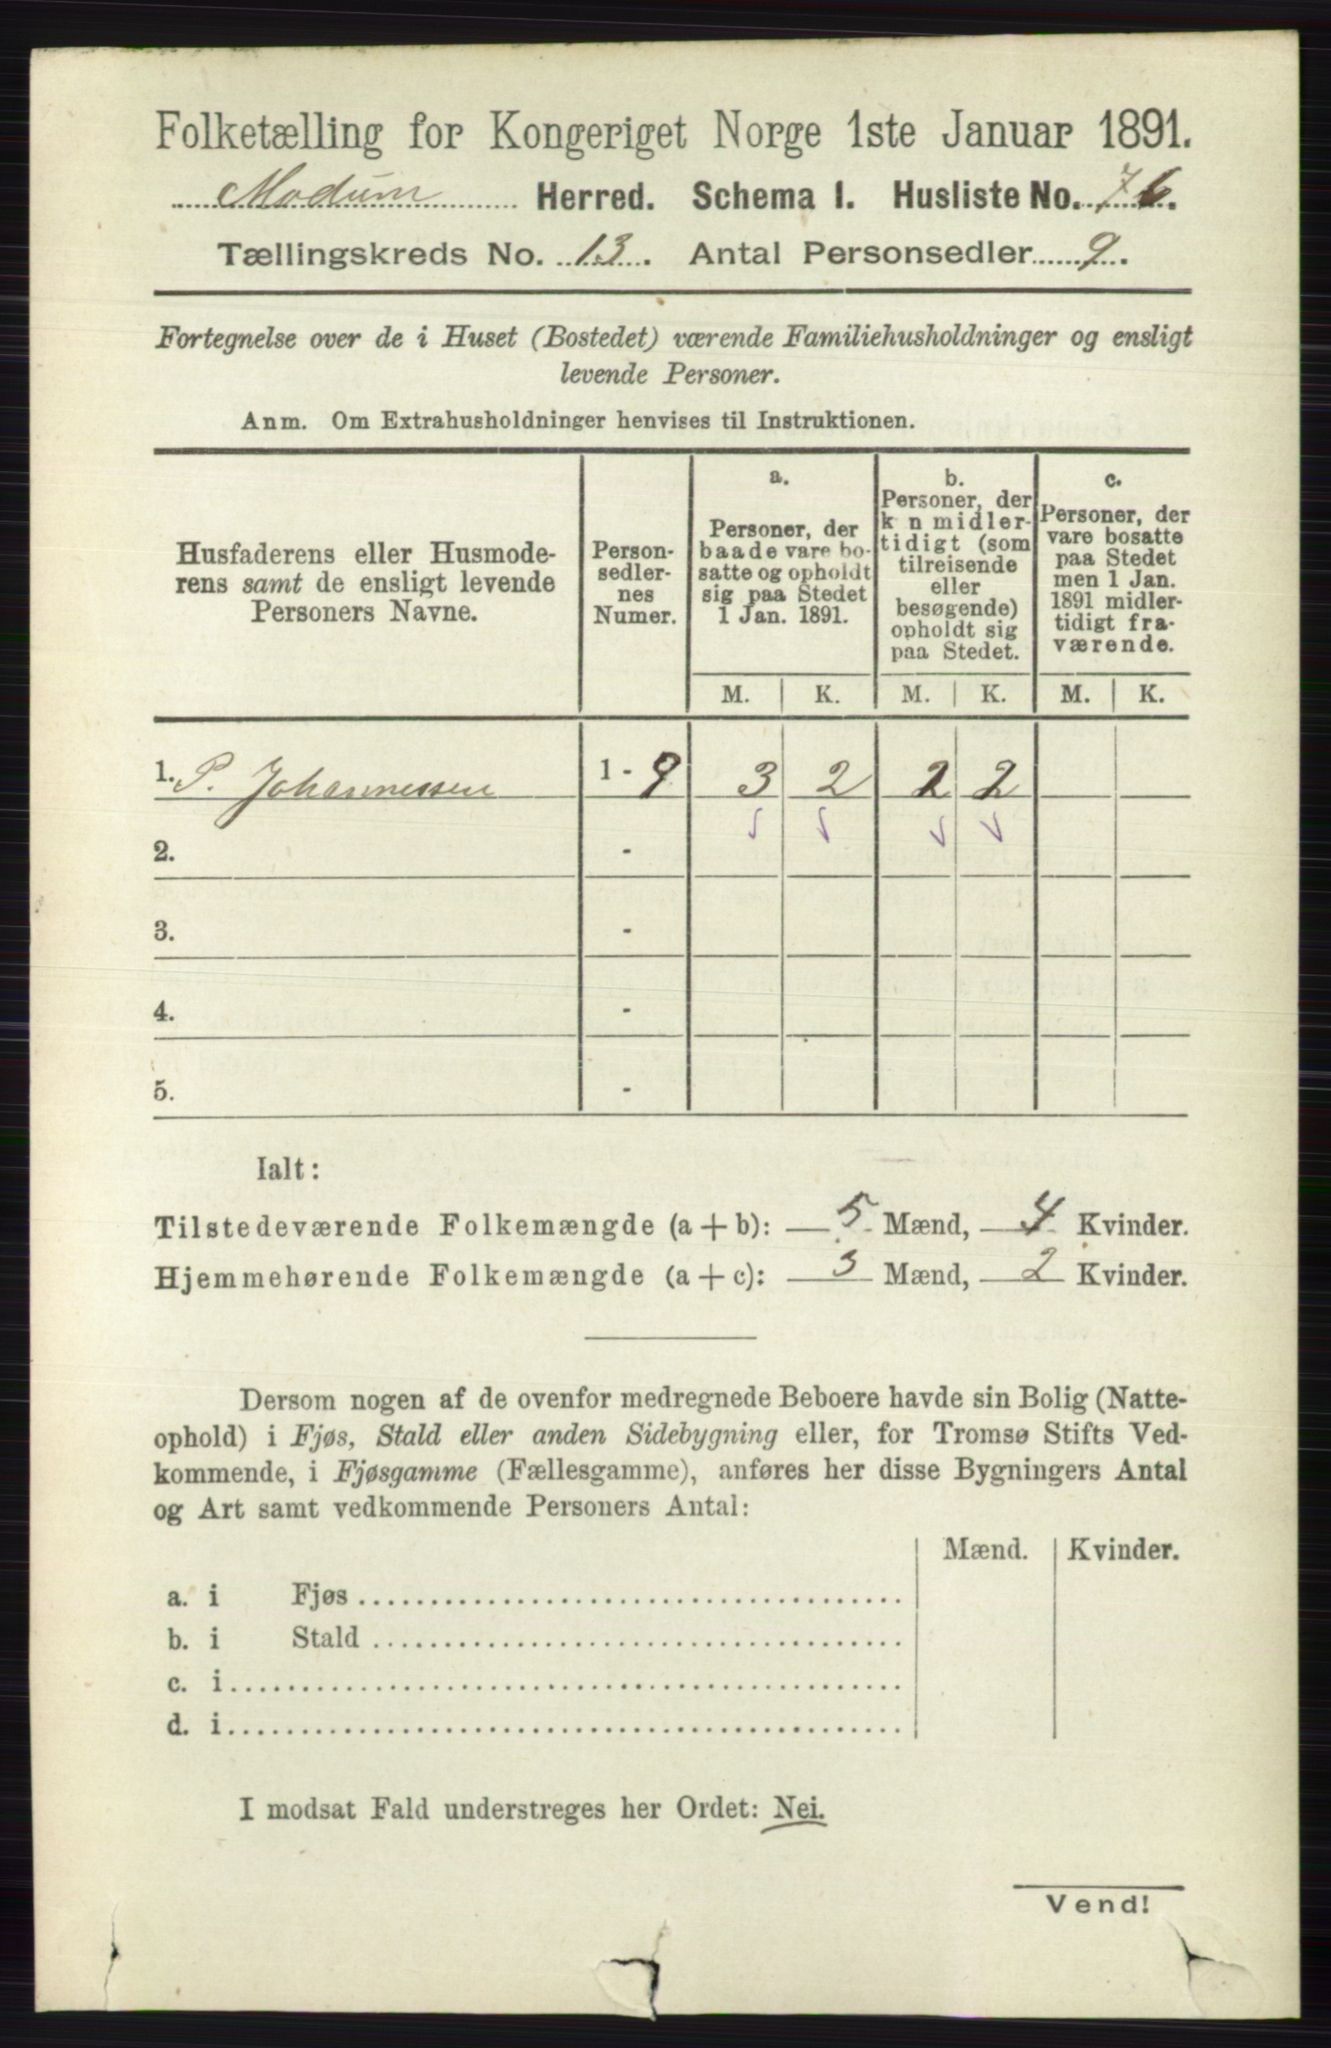 Folketælling for Kongeriget Norge 1ste Januar 1891.
Modum Herred. Schema I. Husliste No. 76.
Tællingskreds No. 13. Antal Personsedler 9.
Fortegnelse over de i Huset (Bostedet) værende Familiehusholdninger og ensligt
levende Personer.
Anm. Om Extrahusholdninger henvises til Instruktionen.
Husfaderens eller Husmode-
rens samt de ensligt levende
Personers Navne.
Person-
sedler-
nes
Numer.
a.
Personer, der
baade vare bo-
satte og opholdt
sig paa Stedet
1 Jan. 1891.
b.
Personer, der
k n midler-
tidigt (som
tilreisende
eller
besøgende)
opholdt sig
paa Stedet.
c.
Personer, der
vare bosatte
paa Stedet
men 1 Jan.
1891 midler-
tidigt fra-
værende.
M. K. M. K. M. K.
1. P. Johannessen 1 - 9 3 2 2 2
2. -
3. -
4. -
5. -
Ialt:
Tilstedeværende Folkemængde (a + b): 5 Mænd, 4 Kvinder.
Hjemmehørende Folkemængde (a + c): 3 Mænd, 2 Kvinder.
Dersom nogen af de ovenfor medregnede Beboere havde sin Bolig (Natte-
ophold) i Fjøs, Stald eller anden Sidebygning eller, for Tromsø Stifts Ved-
kommende, i Fjøsgamme (Fællesgamme), anføres her disse Bygningers Antal
og Art samt vedkommende Personers Antal:
Mænd. Kvinder.
a. i Fjøs
b. i Stald
c. i
d. i
I modsat Fald understreges her Ordet: Nei.
Vend!